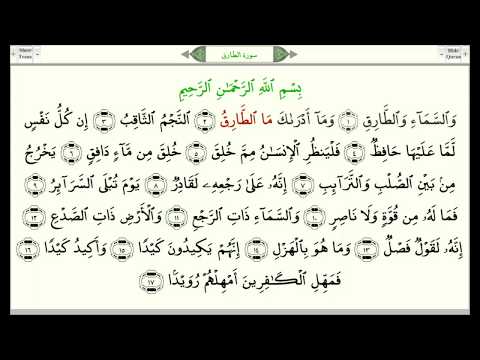 Show Trans
سورة الطارق
Hide Quran
بِسْمِ ٱللَّهِ ٱلرَّحْمَـٰنِ ٱلرَّحِيمِ
وَٱلسَّمَآءِ وَٱلطَّارِقِ ١ وَمَآ أَدْرَىٰكَ مَا ٱلطَّارِقُ ٢ ٱلنَّجْمُ ٱلثَّاقِبُ ٣ إِن كُلُّ نَفْسٍ
لَّمَّا عَلَيْهَا حَافِظٌ ٤ فَلْيَنظُرِ ٱلْإِنسَـٰنُ مِمَّ خُلِقَ ٥ خُلِقَ مِن مَّآءٍ دَافِقٍ ٦ يَخْرُجُ
مِنۢ بَيْنِ ٱلصُّلْبِ وَٱلتَّرَآئِبِ ٧ إِنَّهُۥ عَلَىٰ رَجْعِهِۦ لَقَادِرٌ ٨ يَوْمَ تُبْلَى ٱلسَّرَآئِرُ ٩
فَمَا لَهُۥ مِن قُوَّةٍ وَلَا نَاصِرٍ ١٠ وَٱلسَّمَآءِ ذَاتِ ٱلرَّجْعِ ١١ وَٱلْأَرْضِ ذَاتِ ٱلصَّدْعِ ١٢
إِنَّهُۥ لَقَوْلٌ فَصْلٌ ١٣ وَمَا هُوَ بِٱلْهَزْلِ ١٤ إِنَّهُمْ يَكِيدُونَ كَيْدًا ١٥ وَأَكِيدُ كَيْدًا ١٦
فَمَهِّلِ ٱلْكَـٰفِرِينَ أَمْهِلْهُمْ رُوَيْدًۢا ١٧